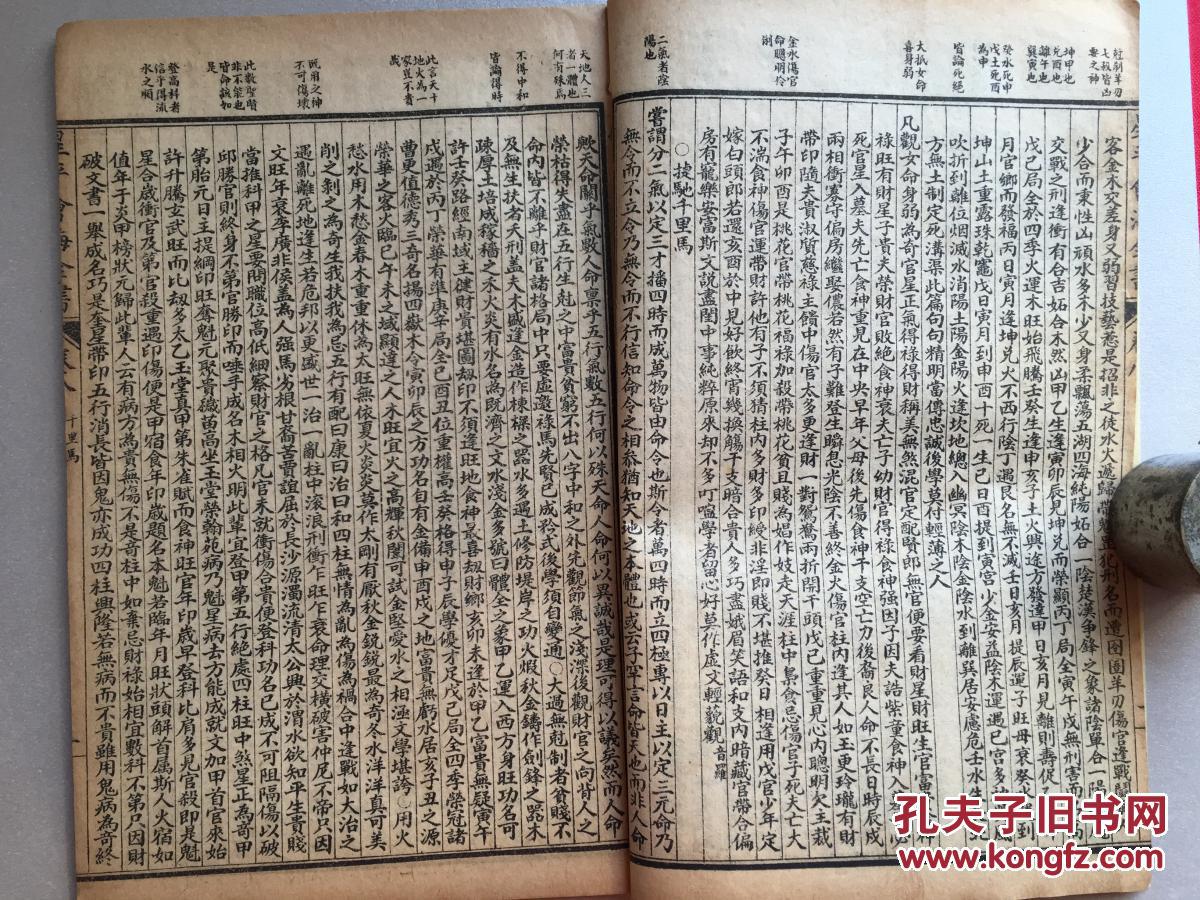 尅制羊刃
七殺皆凶
要之神
坤甲也
兌酉也
離午也
巽寅也
癸水死申
戊土死酉
為申
皆論死絕
大抵女命
喜身弱
金水傷官
命聰明伶
俐
二氣者陰
陽也
客金木交差身又弱習技藝悉是招非之徒水火遞歸犯刑名而遭囹圄羊刃傷官逢戰
少合而秉性凶頑水多木少又身柔飄蕩五湖四海純陽姤合陰楚漢爭鋒之象諸陰單合一陽
交戰之刑逢衝有合吉姤合木然凶甲乙生逢寅卯辰見坤兌而榮顯丙丁局全寅午戌無刑害而
戊己局全於四季火運木地始飛騰壬癸生逢申亥子土火興途方發達甲日亥月見離則壽促
月官鄉而發福丙日寅月逢坤兌火不西行陰丁遇艮名無不滅壬日亥月提辰運子旺母衰癸到
坤山土重露珠乾竈戊日寅月到申酉十死一生己日酉提到寅宮少金安益陰木運遇巳宮多
吹折到離位烟滅水消陽土陽金陽火逢坎地總入幽冥陰木陰金陰水到離巽居安慮危壬水生
方無土制定死溝渠此篇句句精明當傳忠誠後學莫付輕薄之人
凡觀女命身弱為奇官星正氣得祿得財稱美無煞混官定配賢郎無官便要看財星財旺生官富
祿旺有財星子貴夫榮財官敗絕食神衰夫亡子幼財官得祿食神強因子因夫誥紫童食神入
死官星入墓夫先亡食神重見在中央早年父母後先傷食神干支空亡力後裔艮人命不長日時辰戌
兩相衝寡守偏房繼娶儂若然有子難登生瞬息光陰不善終金火傷官柱內逢其人如玉更玲瓏有財
帶印隨夫貴淑質慈祿主饋中傷官太多更逢財一對鴛鴦兩折開干頭戊己重重見心內聰明欠主裁
子午卯酉是桃花官帶桃花福祿加殺帶桃花貧且賤為娼作妓走天涯柱中梟食忌傷官子死夫亡大
不滿食神傷官運帶財許他有子不須猜柱內多財多印綬非淫即賤不堪推癸日相逢用戊官少年定
嫁白頭郎若還亥酉於中見好飲終宵幾換觴子支暗合貴人多巧盡娥眉笑語和支內暗藏官帶合偏
房有寵樂安富斯文說盡閨中事純粹原來却不多叮嚀學者留心好莫作虛文輕藐觀音羅
捷馳千里馬
嘗謂分二氣以定三才播四時而成萬物皆由命令也斯令者萬四時而立四極專以日主以定三元命乃
無令而不立令乃無命而不行信知命令之相參猶知天地之本體也或云子罕言命皆天也而非人命
天地人三
者一體也
何有殊焉
不得中和
皆論得時
此言天干
地火為一
家豈不貴
哉
既用之神
不可傷壞
此數聖晴
非不能也
皆命該如
是
登高科者
信乎得流
水之順
歟天命關乎氣數人命稟乎五行氣數五行何以殊天命人命何以異誠哉是理可得以議矣然而人命
榮枯得失盡在五行生尅之中富貴貧窮不出八字中和之外先觀節氣之淺深後觀財官之向背人之
命內皆不離乎財官諸格局中只要虛邀祿馬先賢已成矜式後學須自變通○大過無尅制者貧賤不
及無生扶者夭刑盖夫木盛逢金造作棟樑之器水多遇土修防堤岸之功火煆秋金鑄作劍鋒之器木
疎厚土培成稼穡之禾火炎有水名為既濟之文水淺金多號曰體全之象甲乙運入西方身旺功名可
許壬癸路經南域主健財貴堪圖劫印不須逢旺地食神最喜刼財鄉亥卯未逢於甲乙富貴無疑寅午
戌遇於丙丁榮華有準庚辛局全巳酉丑位重權高壬癸格得申子辰學優才足戊己局全四季榮冠諸
曹更值德秀三奇名揚四嶽木令寅卯辰之方功名自有金備申酉戌之地富貴無虧水居亥子丑之源
榮華之客火臨巳午未之域顯達之人木旺宜火之高輝秋闈可試金堅愛水之相涵文學堪誇○用火
愁水用木愁金春木重重休為太旺無依夏火炎炎莫作太剛有厭秋金銳銳最為奇冬水洋洋真可美
削之剝之為奇生我扶我為忌五行有配曰康曰治曰和四柱無情為亂為傷為禍合中逢戰如大治之
遇亂離死地逢生若危邦以更盛世一治一亂柱中滾浪刑衝乍旺乍衰命理交橫破害仲尼不帝只因
文旺年衰李廣非侯盖為人強馬劣很甘裔苦賈誼屈於長沙源濁流清太公興於渭水欲知平生貴賤
當推科甲之星要問職位高低細察財官之格凡官未就衝傷合貴便登科功名已成不可阻隔傷以破
邱勝官則終身不第官勝印而唾手成名木相火明此輩宜登甲第五行絕處四柱旺中煞星正為奇甲
第胎元日主提綱印旺奪魁元聚貴織黃高坐玉堂榮翰苑病乃魁星病去方能成就文加甲首官來始
許升騰玄武旺而比刼多太乙玉堂真甲第朱雀賦而食神旺官年印歲早登科比肩多見官殺即是魁
星合歲衝官及第官殺重遇印傷便是甲宿食年印歲題名本魁若臨年月旺狀頭解首屬斯人火宿如
值年于炎甲榜狀元歸此輩人云有病方為貴無傷不是奇柱中如棄忌財祿始相宜數科不第只因財
破文書一舉成名巧是奎星帶印五行消長皆因鬼亦成功四柱興隆若無病而不貴雖用鬼病為奇終
千里馬
孔夫子旧书网
www.kongfz.com